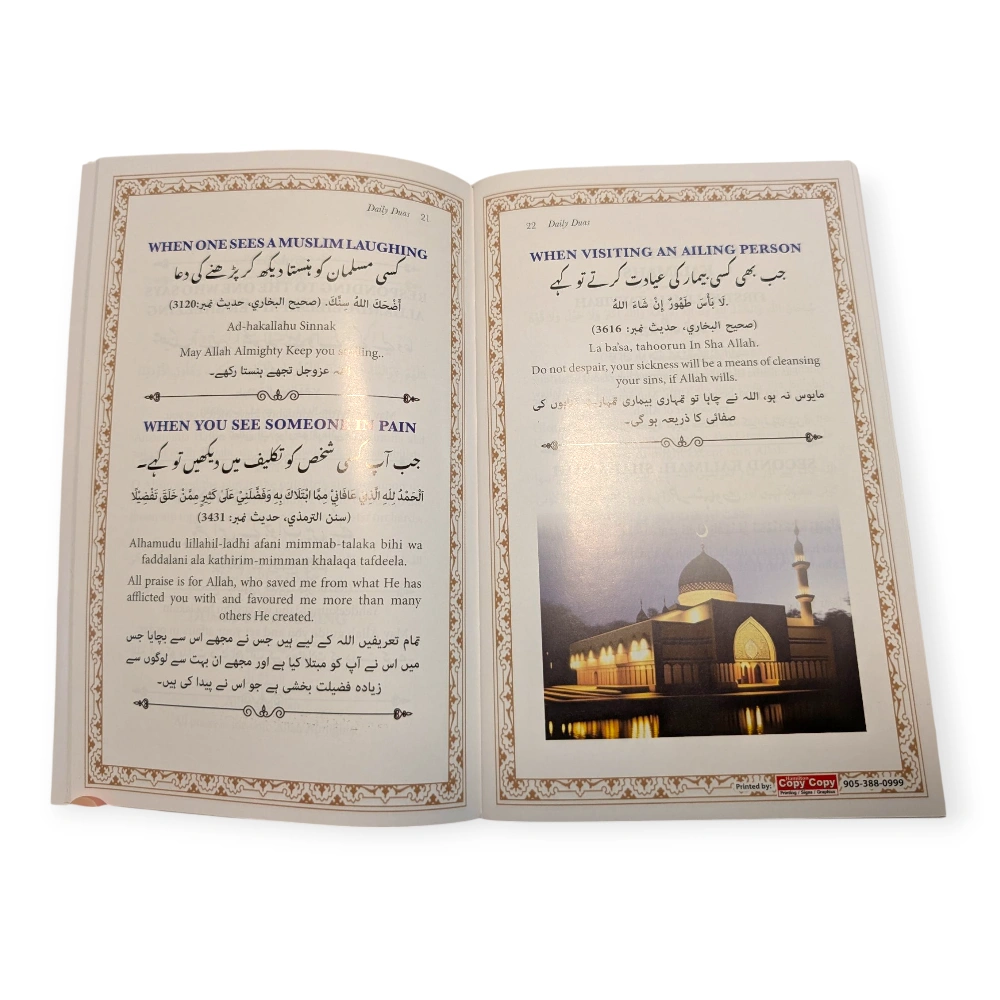 Daily Duas 21
WHEN ONE SEES A MUSLIM LAUGHING
کسی مسلمان کو ہنستا دیکھ کر پڑھنے کی دعا
أَضْحَكَ اللهُ سِنَّكَ. (صحيح البخاري، حدیث نمبر:3120)
Ad-hakallahu Sinnak
May Allah Almighty Keep you
عزوجل تجھے ہنستا رکھے۔
WHEN YOU SEE SOMEONE IN PAIN
جب آپ کسی شخص کو تکلیف میں دیکھیں تو کہے۔
اَلْحَمْدُ لِلّٰهِ الَّذِيْ عَافَانِيْ مِمَّا ابْتَلَاكَ بِهٖ وَفَضَّلَنِيْ عَلىٰ كَثِيْرٍ مِمَّنْ خَلَقَ تَفْضِيْلًا
(سنن الترمذي، حدیث نمبر: 3431)
Alhamudu lillahil-ladhi afani mimmab-talaka bihi wa
faddalani ala kathirim-mimman khalaqa tafdeela.
All praise is for Allah, who saved me from what He has
afflicted you with and favoured me more than many
others He created.
تمام تعریفیں اللہ کے لیے ہیں جس نے مجھے اس سے بچایا جس
میں اس نے آپ کو مبتلا کیا ہے اور مجھے ان بہت سے لوگوں سے
زیادہ فضیلت بخشی ہے جو اس نے پیدا کی ہیں۔
22 Daily Duas
WHEN VISITING AN AILING PERSON
جب بھی کسی بیمار کی عیادت کرتے تو کہے
لَا بَأْسَ طَهُوْرٌ إِنْ شَاءَ اللهُ.
(صحيح البخاري، حدیث نمبر: 3616)
La ba'sa, tahoorun In Sha Allah.
Do not despair, your sickness will be a means of cleansing
your sins, if Allah wills.
مایوس نہ ہو، اللہ نے چاہا تو تمہاری بیماری تمہارے کی
صفائی کا ذریعہ ہو گی۔
Printed by: Hamilton Copy Copy 905-388-0999
Printing / Signs / Graphics